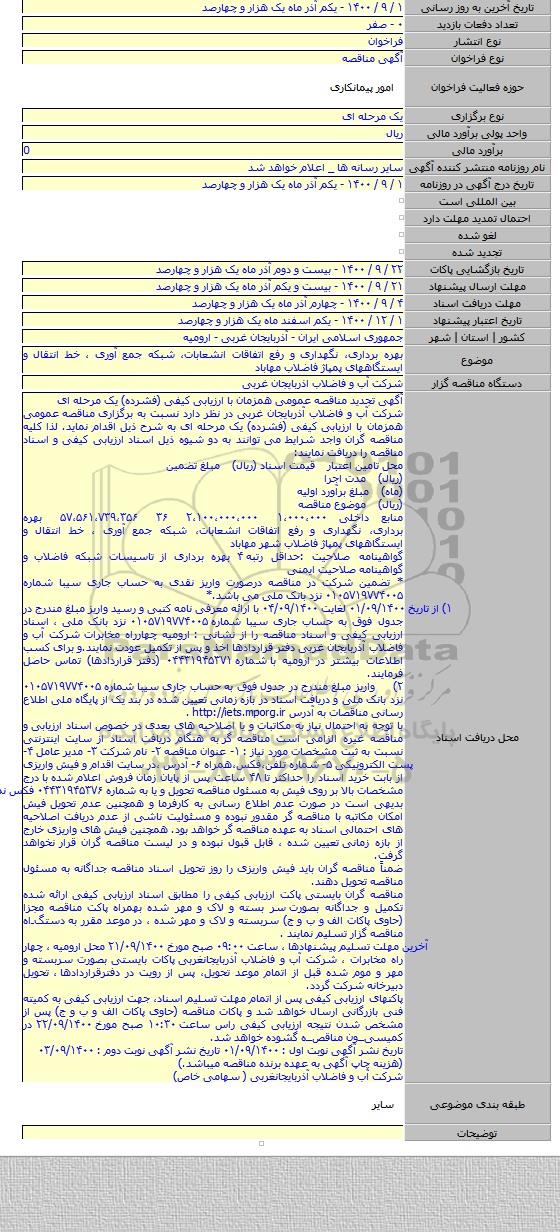 تاریخ آخرین به روز رسانی ۱ / ۹ / ۱۴۰۰ - یکم آذر ماه یک هزار و چهارصد
تعداد دفعات بازدید ۰ - صفر
نوع انتشار فراخوان
نوع فراخوان آگهی مناقصه
حوزه فعالیت فراخوان امور پیمانکاری
نوع برگزاری یک مرحله ای
واحد پولی برآورد مالی ریال
برآورد مالی 0
نام روزنامه منتشر کننده آگهی سایر رسانه ها _ اعلام خواهد شد
تاریخ درج آگهی در روزنامه ۱ / ۹ / ۱۴۰۰ - یکم آذر ماه یک هزار و چهارصد
بین المللی است
احتمال تمدید مهلت دارد
لغو شده
تجدید شده
تاریخ بازگشایی پاکات ۲۲ / ۹ / ۱۴۰۰ - بیست و دوم آذر ماه یک هزار و چهارصد
مهلت ارسال پیشنهاد ۲۱ / ۹ / ۱۴۰۰ - بیست و یکم آذر ماه یک هزار و چهارصد
مهلت دریافت اسناد ۴ / ۹ / ۱۴۰۰ - چهارم آذر ماه یک هزار و چهارصد
تاریخ اعتبار پیشنهاد ۱ / ۱۲ / ۱۴۰۰ - یکم اسفند ماه یک هزار و چهارصد
کشور | استان | شهر جمهوری اسلامی ایران - آذربایجان غربی - ارومیه
موضوع بهره برداری، نگهداری و رفع اتفاقات انشعابات، شبکه جمع آوری ، خط انتقال و
ایستگاههای پمپاژ فاضلاب مهاباد
دستگاه مناقصه گزار شرکت آب و فاضلاب آذربایجان غربی
محل دریافت اسناد
آگهی تجدید مناقصه عمومی همزمان با ارزیابی کیفی (فشرده) یک مرحله ای
شرکت آب و فاضلاب آذربایجان غربی در نظر دارد نسبت به برگزاری مناقصه عمومی
همزمان با ارزیابی کیفی (فشرده) یک مرحله ای به شرح ذیل اقدام نماید. لذا کلیه
مناقصه گران واجد شرایط می توانند به دو شیوه ذیل اسناد ارزیابی کیفی و اسناد
مناقصه را دریافت نمایند:
محل تامین اعتبار قیمت اسناد (ریال) مبلغ تضمین
(ریال) مدت اجرا
(ماه) مبلغ برآورد اولیه
(ریال) موضوع مناقصه
منابع داخلی ۱،۰۰۰،۰۰۰ ۲،۱۰۰،۰۰۰،۰۰۰ ۳۶ ۵۷،۵۶۱،۷۳۹،۳۵۶ بهره
برداری، نگهداری و رفع اتفاقات انشعابات، شبکه جمع آوری ، خط انتقال و
ایستگاههای پمپاژ فاضلاب شهر مهاباد
گواهینامه صلاحیت :حداقل رتبه۴ بهره برداری از تاسیسات شبکه فاضلاب و
گواهینامه صلاحیت ایمنی
* تضمین شرکت در مناقصه درصورت واریز نقدی به حساب جاری سیبا شماره
۰۱۰۵۷۱۹۷۷۴۰۰۵ نزد بانک ملی می باشد.*
۱) از تاریخ ۰۱/۰۹/۱۴۰۰ لغایت ۰۴/۰۹/۱۴۰۰ با ارائه معرفی نامه کتبی و رسید واریز مبلغ مندرج در
جدول فوق به حساب جاری سیبا شماره ۰۱۰۵۷۱۹۷۷۴۰۰۵ نزد بانک ملی ، اسناد
ارزیابی کیفی و اسناد مناقصه را از نشانی : ارومیه چهارراه مخابرات شرکت آب و
فاضلاب آذربایجان غربی دفتر قراردادها اخذ و پس از تکمیل عودت نمایند.و برای کسب
اطلاعات بیشتر در ارومیه با شماره ۰۴۴۳۱۹۴۵۳۷۱ (دفتر قراردادها) تماس حاصل
فرمایند.
۲) واریز مبلغ مندرج در جدول فوق به حساب جاری سیبا شماره ۰۱۰۵۷۱۹۷۷۴۰۰۵
نزد بانک ملی و دریافت اسناد در بازه زمانی تعیین شده در بند یک از پایگاه ملی اطلاع
رسانی مناقصات به آدرس http://iets.mporg.ir .
با توجه به احتمال نیاز به مکاتبات و یا اصلاحیه های بعدی در خصوص اسناد ارزیابی و
مناقصه غیره الزامی است مناقصه گر به هنگام دریافت اسناد از سایت اینترنتی
نسبت به ثبت مشخصات مورد نیاز : ۱- عنوان مناقصه ۲- نام شرکت ۳- مدیر عامل ۴-
پست الکترونیکی ۵- شماره تلفن،فکس،همراه ۶- آدرس ،در سایت اقدام و فیش واریزی
از بابت خرید اسناد را حداکثر تا ۴۸ ساعت پس از پایان زمان فروش اعلام شده با درج
مشخصات بالا بر روی فیش به مسئول مناقصه تحویل و یا به شماره ۰۴۴۳۱۹۴۵۳۷۶ فکس
بدیهی است در صورت عدم اطلاع رسانی به کارفرما و همچنین عدم تحویل فیش
امکان مکاتبه با مناقصه گر مقدور نبوده و مسئولیت ناشی از عدم دریافت اصلاحیه
های احتمالی اسناد به عهده مناقصه گر خواهد بود. همچنین فیش های واریزی خارج
از بازه زمانی تعیین شده ، قابل قبول نبوده و در لیست مناقصه گران قرار نخواهد
گرفت.
ضمناً مناقصه گران باید فیش واریزی را روز تحویل اسناد مناقصه جداگانه به مسئول
مناقصه تحویل دهند.
مناقصه گران بایستی پاکت ارزیابی کیفی را مطابق اسناد ارزیابی کیفی ارائه شده
تکمیل و جداگانه بصورت سر بسته و لاک و مهر شده بهمراه پاکت مناقصه مجزا
(حاوی پاکات الف و ب و ج) سربسته و لاک و مهر شده ، در موعد مقرر به دستگـاه
مناقصه گزار تسلیم نمایند .
آخرین مهلت تسلیم پیشنهادها ، ساعت ۰۹:۰۰ صبح مورخ ۲۱/۰۹/۱۴۰۰ محل ارومیه ، چهار
راه مخابرات ، شرکت آب و فاضلاب آذربایجانغربی پاکات بایستی بصورت سربسته و
مهر و موم شده قبل از اتمام موعد تحویل، پس از رویت در دفترقراردادها ، تحویل
دبیرخانه شرکت گردد.
پاکتهای ارزیابی کیفی پس از اتمام مهلت تسلیم اسناد، جهت ارزیابی کیفی به کمیته
فنی بازرگانی ارسال خواهد شد و پاکات مناقصه (حاوی پاکات الف و ب و ج) پس از
مشخص شدن نتیجه ارزیابی کیفی راس ساعت ۱۰:۳۰ صبح مورخ ۲۲/۰۹/۱۴۰۰ در
کمیسیــون مناقصــه گشوده خواهد شد.
تاریخ نشر آگهی نوبت اول : ۰۱/۰۹/۱۴۰۰ تاریخ نشر آگهی نوبت دوم : ۰۳/۰۹/۱۴۰۰
(هزینه چاپ آگهی به عهده برنده مناقصه میباشد.)
شرکت آب و فاضلاب آذربایجانغربی ( سهامی خاص)
طبقه بندی موضوعی سایر
توضیحات